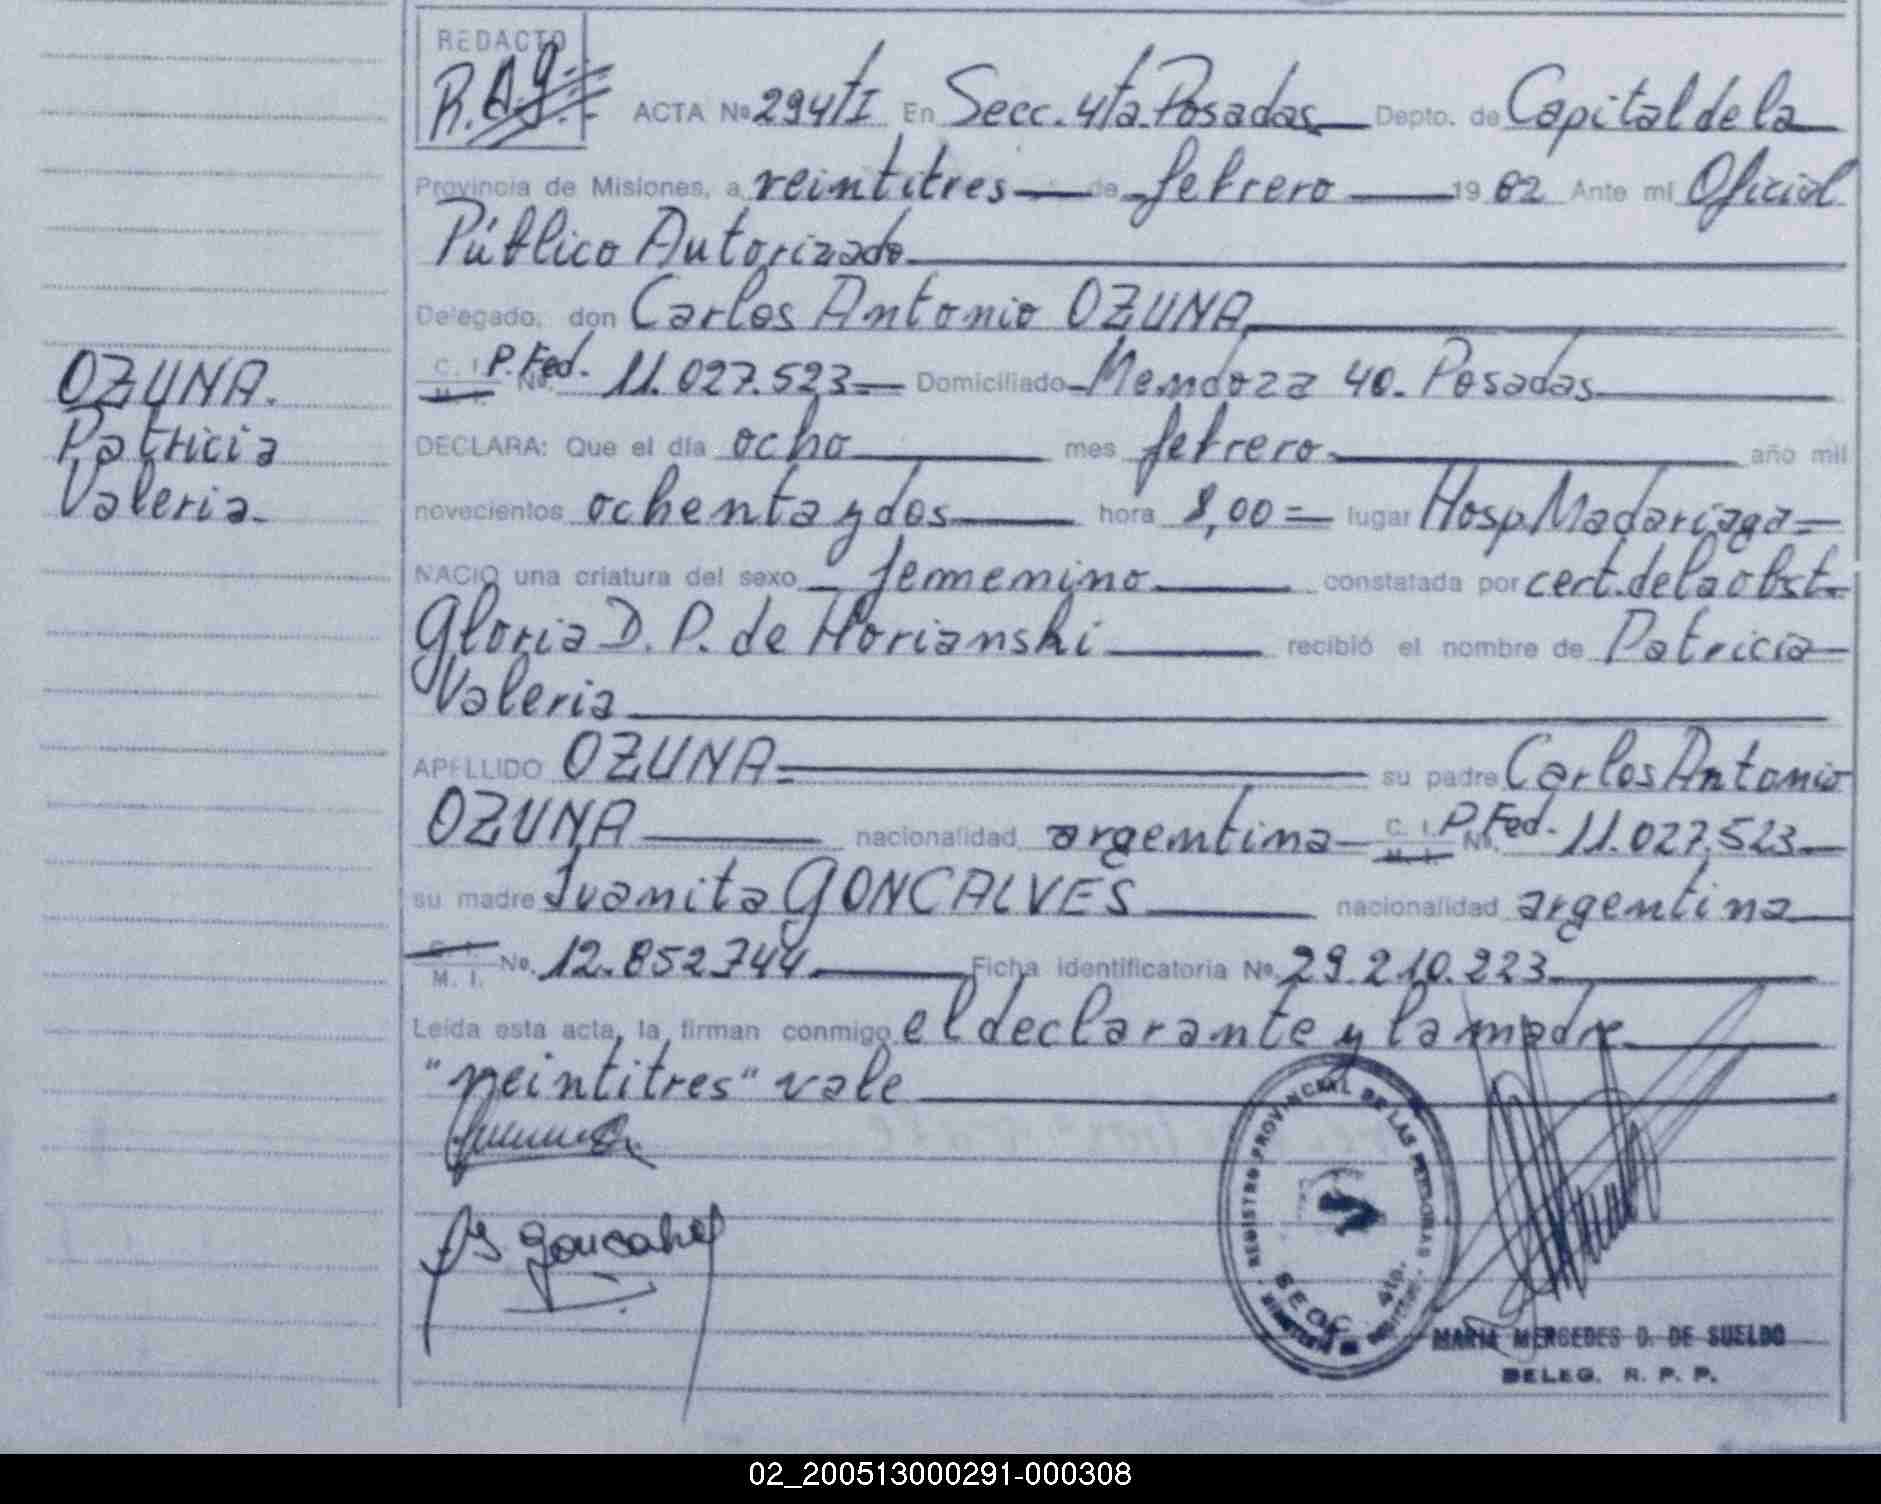 REDACTO
R.A.g.
ACTA Nº 294/I En Secc. 4/ta. Posadas Depto. de Capital de la
Provincia de Misiones, a veintitres de febrero 19 82 Ante mí Oficial
Público Autorizado
Delegado, don Carlos Antonio OZUNA
C. I. M. I. No. P. Fed. 11.027.523 Domiciliado Mendoza 40. Posadas
OZUNA.
Patricia
Valeria.
DECLARA: Que el día ocho mes febrero año mil
novecientos ochenta y dos hora 8,00 = lugar Hosp. Madariaga =
NACIO una criatura del sexo femenino constatada por cert. de la obst.
Gloria D. P. de Horianski recibió el nombre de Patricia
Valeria
APELLIDO OZUNA su padre Carlos Antonio
OZUNA nacionalidad argentina C. I. M. I. No. P. Fed. 11.027.523
su madre Juanita GONCALVES nacionalidad argentina
C. I. M. I. No. 12.852.744 Ficha identificatoria No. 29.210.223
Leída esta acta, la firman conmigo el declarante y la madre
"veintitres" vale
REGISTRO PROVINCIAL DE LAS PERSONAS
SECC. 4ta.
MARIA MERCEDES D. DE SUELDO
DELEG. R. P. P.
02_200513000291-000308